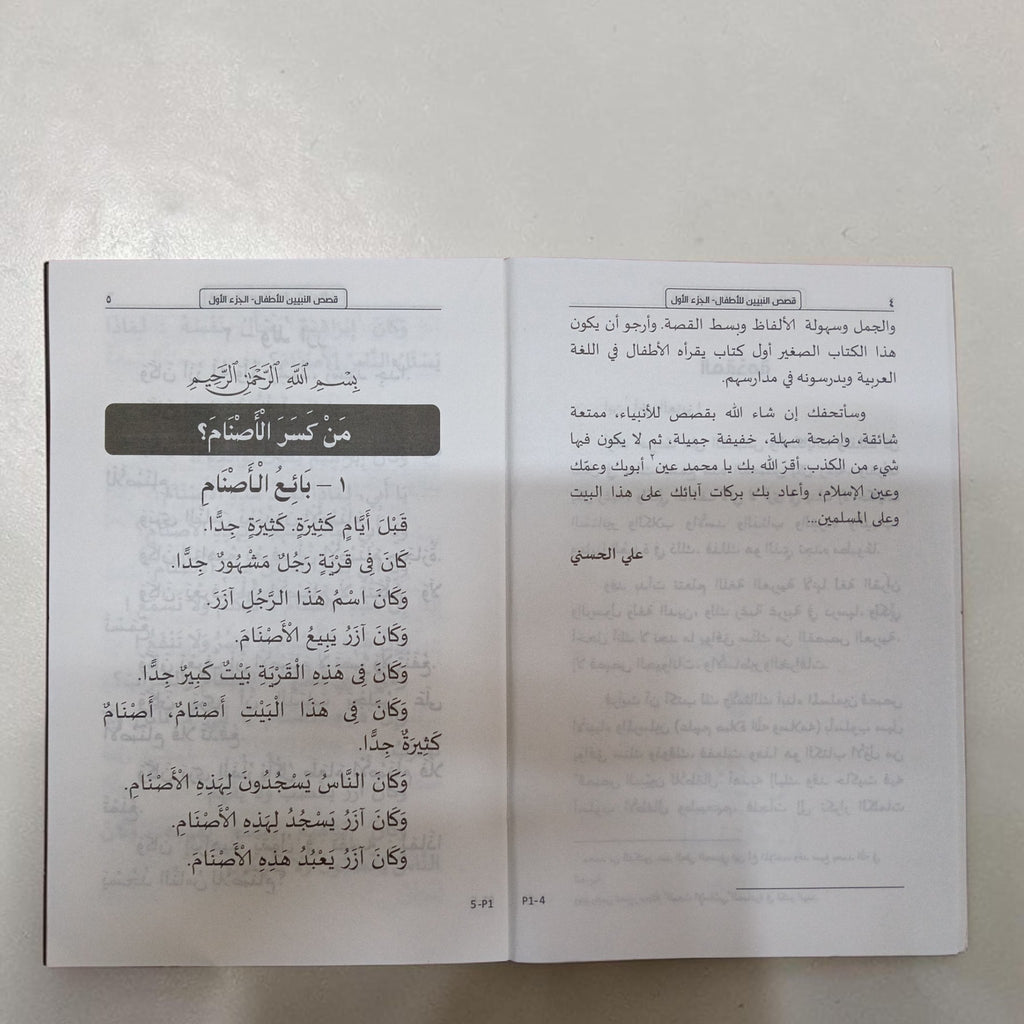 قصص النبيين للأطفال- الجزء الأول
٤
والجمل وسهولة الألفاظ وبسط القصة. وأرجو أن يكون
هذا الكتاب الصغير أول كتاب يقرأه الأطفال في اللغة
العربية ويدرسونه في مدارسهم.
وسأتحفك إن شاء الله بقصص للأنبياء، ممتعة
شائقة، واضحة سهلة، خفيفة جميلة، ثم لا يكون فيها
شيء من الكذب. أقرّ الله بك يا محمد عين٢ أبويك وعمّك
وعين الإسلام، وأعاد بك بركات آبائك على هذا البيت
وعلى المسلمين...
علي الحسني
P1-4
قصص النبيين للأطفال- الجزء الأول
٥
بِسْمِ ٱللَّهِ ٱلرَّحْمَٰنِ ٱلرَّحِيمِ
مَنْ كَسَرَ الْأَصْنَامَ؟
١ – بَائِعُ الْأَصْنَامِ
قَبْلَ أَيَّامٍ كَثِيرَةٍ. كَثِيرَةٍ جِدًّا.
كَانَ فِى قَرْيَةٍ رَجُلٌ مَشْهُورٌ جِدًّا.
وَكَانَ اسْمُ هَذَا الرَّجُلِ آزَرَ.
وَكَانَ آزَرُ يَبِيعُ الْأَصْنَامَ.
وَكَانَ فِى هَذِهِ الْقَرْيَةِ بَيْتٌ كَبِيرٌ جِدًّا.
وَكَانَ فِى هَذَا الْبَيْتِ أَصْنَامٌ، أَصْنَامٌ
كَثِيرَةٌ جِدًّا.
وَكَانَ النَّاسُ يَسْجُدُونَ لِهَذِهِ الْأَصْنَامِ.
وَكَانَ آزَرُ يَسْجُدُ لِهَذِهِ الْأَصْنَامِ.
وَكَانَ آزَرُ يَعْبُدُ هَذِهِ الْأَصْنَامَ.
5-P1